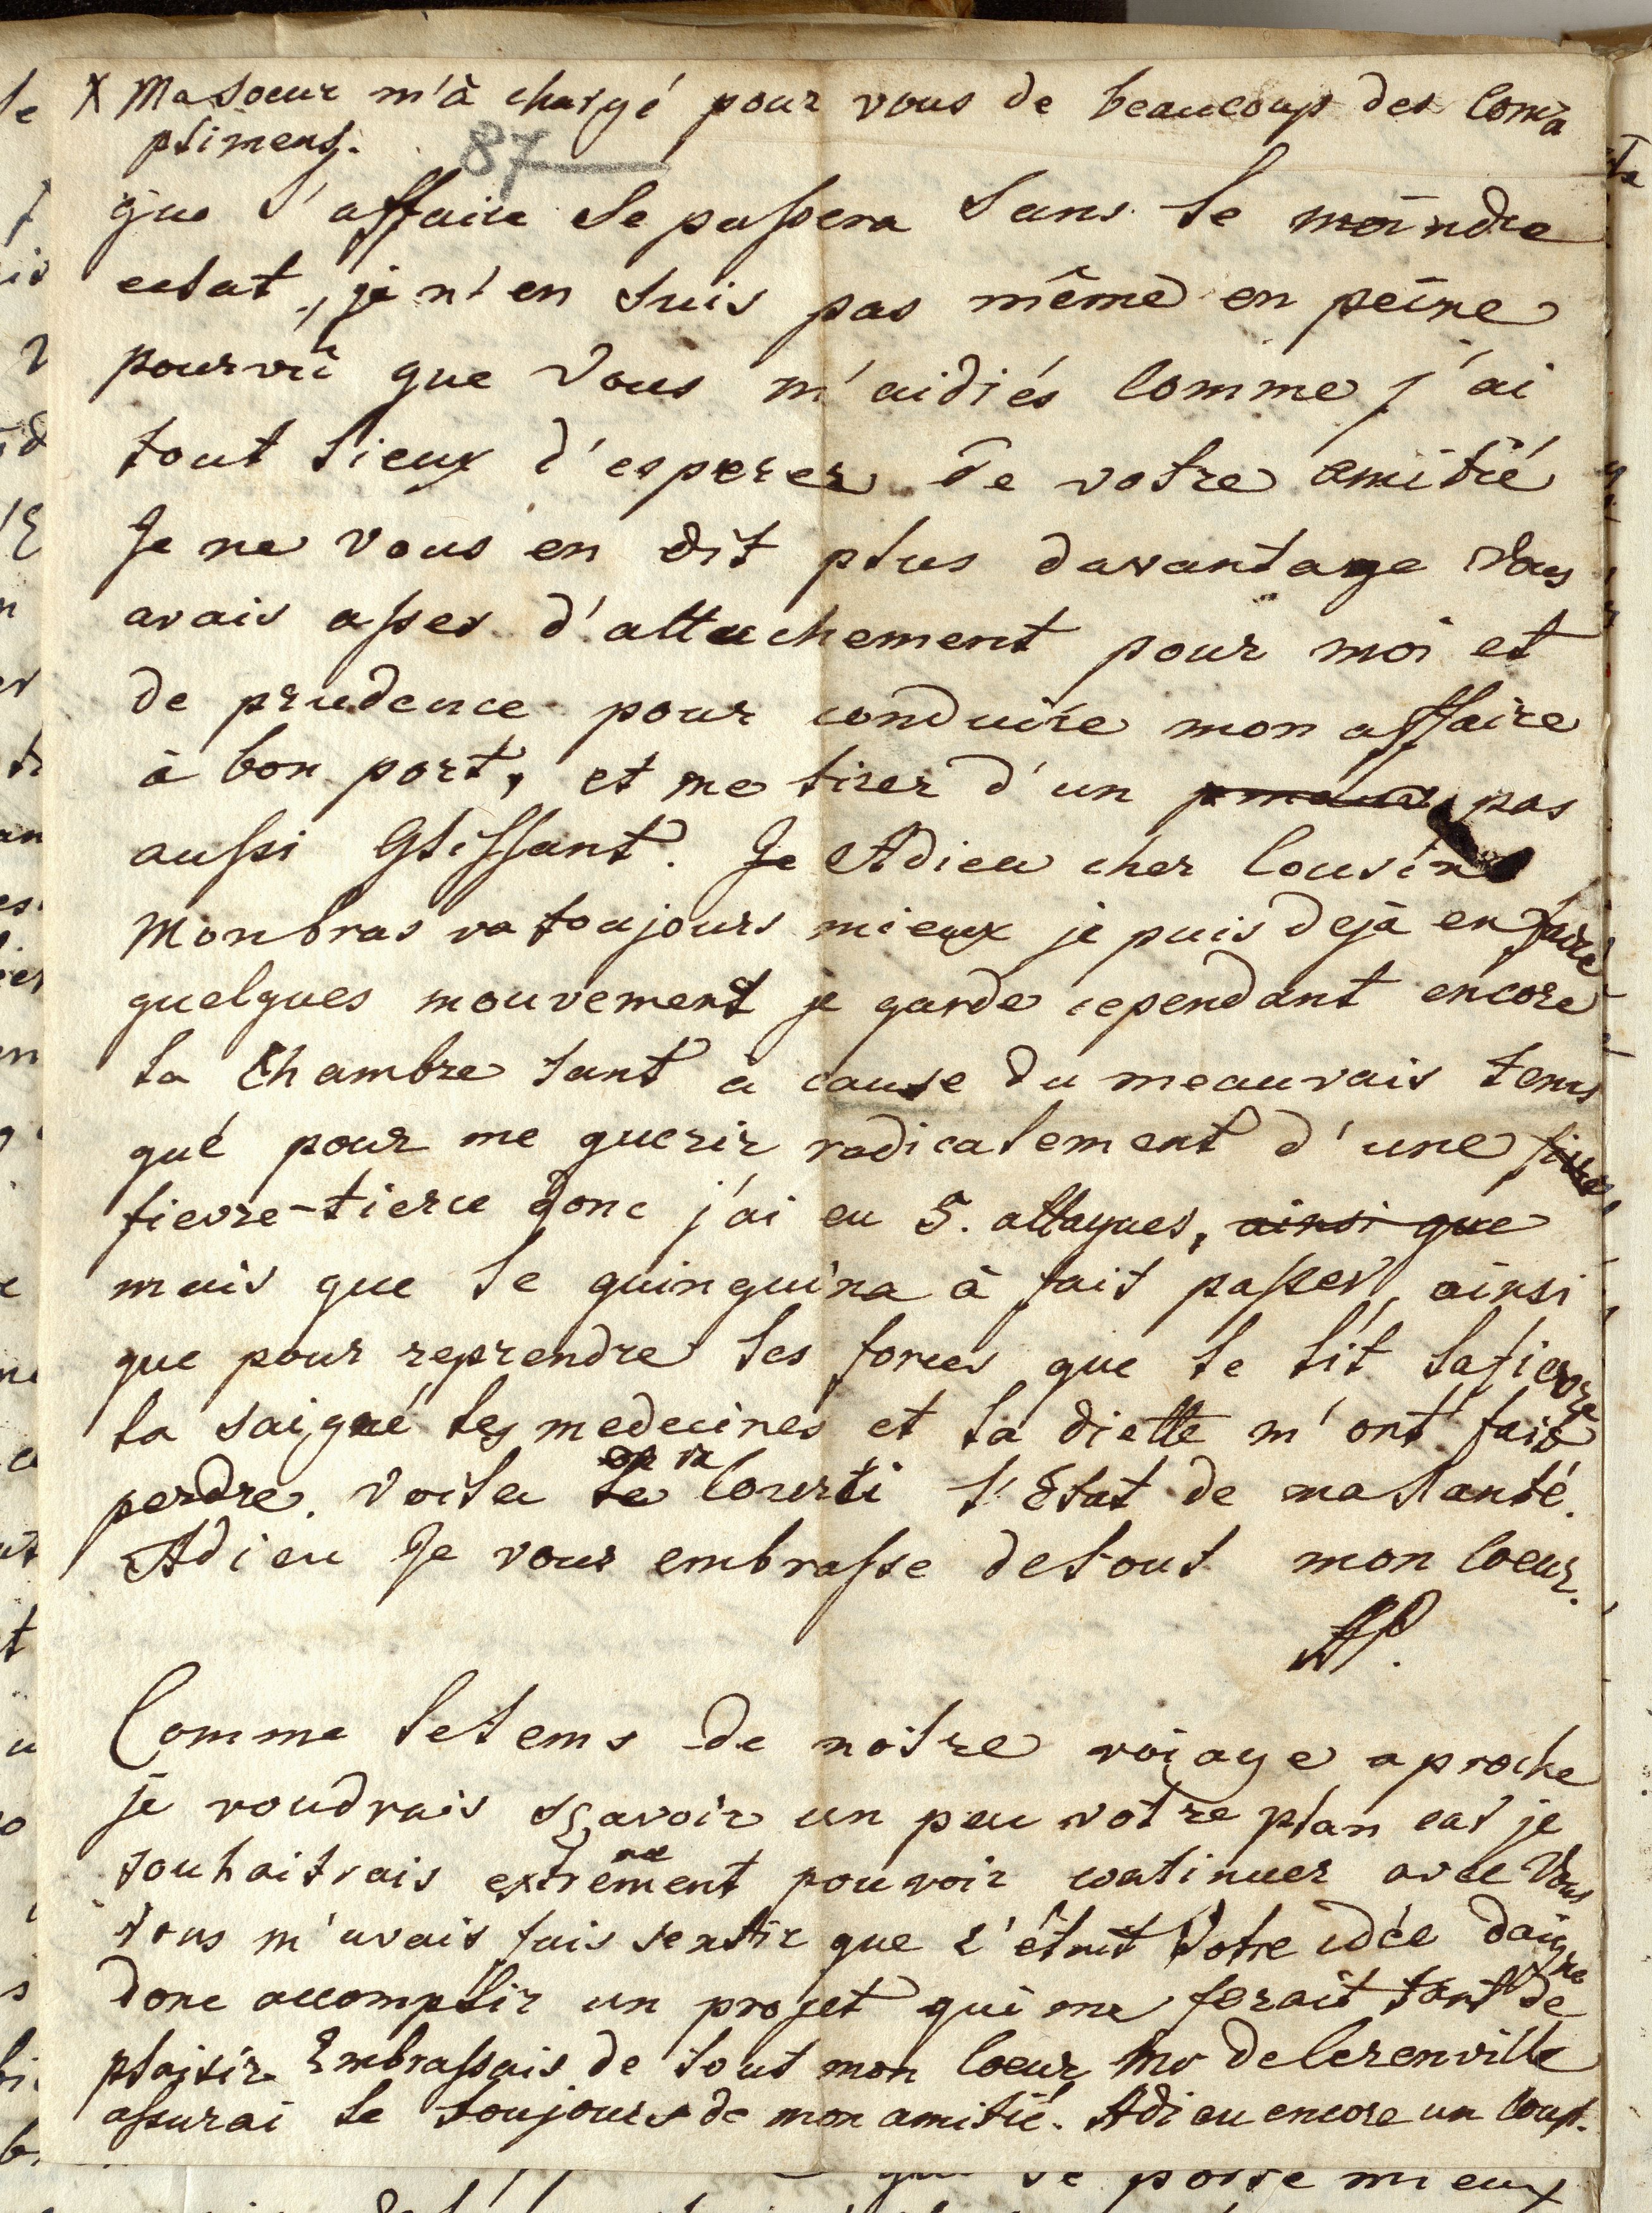 X Ma soeur m'à chargé pour vous de beaucoup des Com
plimens.
87
que l'affaire se passera sans le moindre
eclat, je n'en suis pas même en peine
pourvû que Vous m'aidiés Comme j'ai
tout lieux d'esperer de votre amitié
Je ne Vous en dit plus davantage Vous
avais assez d'attachement pour moi et
de prudence pour conduire mon affaire
à bon port, et me tirer d'un pas
aussi Glissant. Je Adieu cher Cousin
Mon bras va toujours mieux je puis dejà en faire
quelques mouvement je garde cependant encore
la Chambre tant à cause du meauvais tems
qué pour me guerir radicalement d'une
fievre-tierce donc j'ai eu 5. attaques, ainsi que
mais que le quinquina à fait passer, ainsi
que pour reprendre les forces que le lit la fievre
la saigné les medecines et la diette m'ont fait
perdre. Voila en Courti l'Etat de ma santé.
Adieu Je vous embrasse de tout mon Coeur.
Comme le tems de nôtre voiage aproche
je voudrais sçavoir un peu votre plan cat je
souhaitrais extrêmement pouvoir continuer avec Vous
Vous m'avais fais sentir que c'étoit Votre idée daigne
donc accomplir un projet qui me ferait tant de
plaisir Embrassais de tout mon Coeur Mr de Cerenville
assurai le toujours de mon amitié. Adieu encore un Coup.
se porte mieux